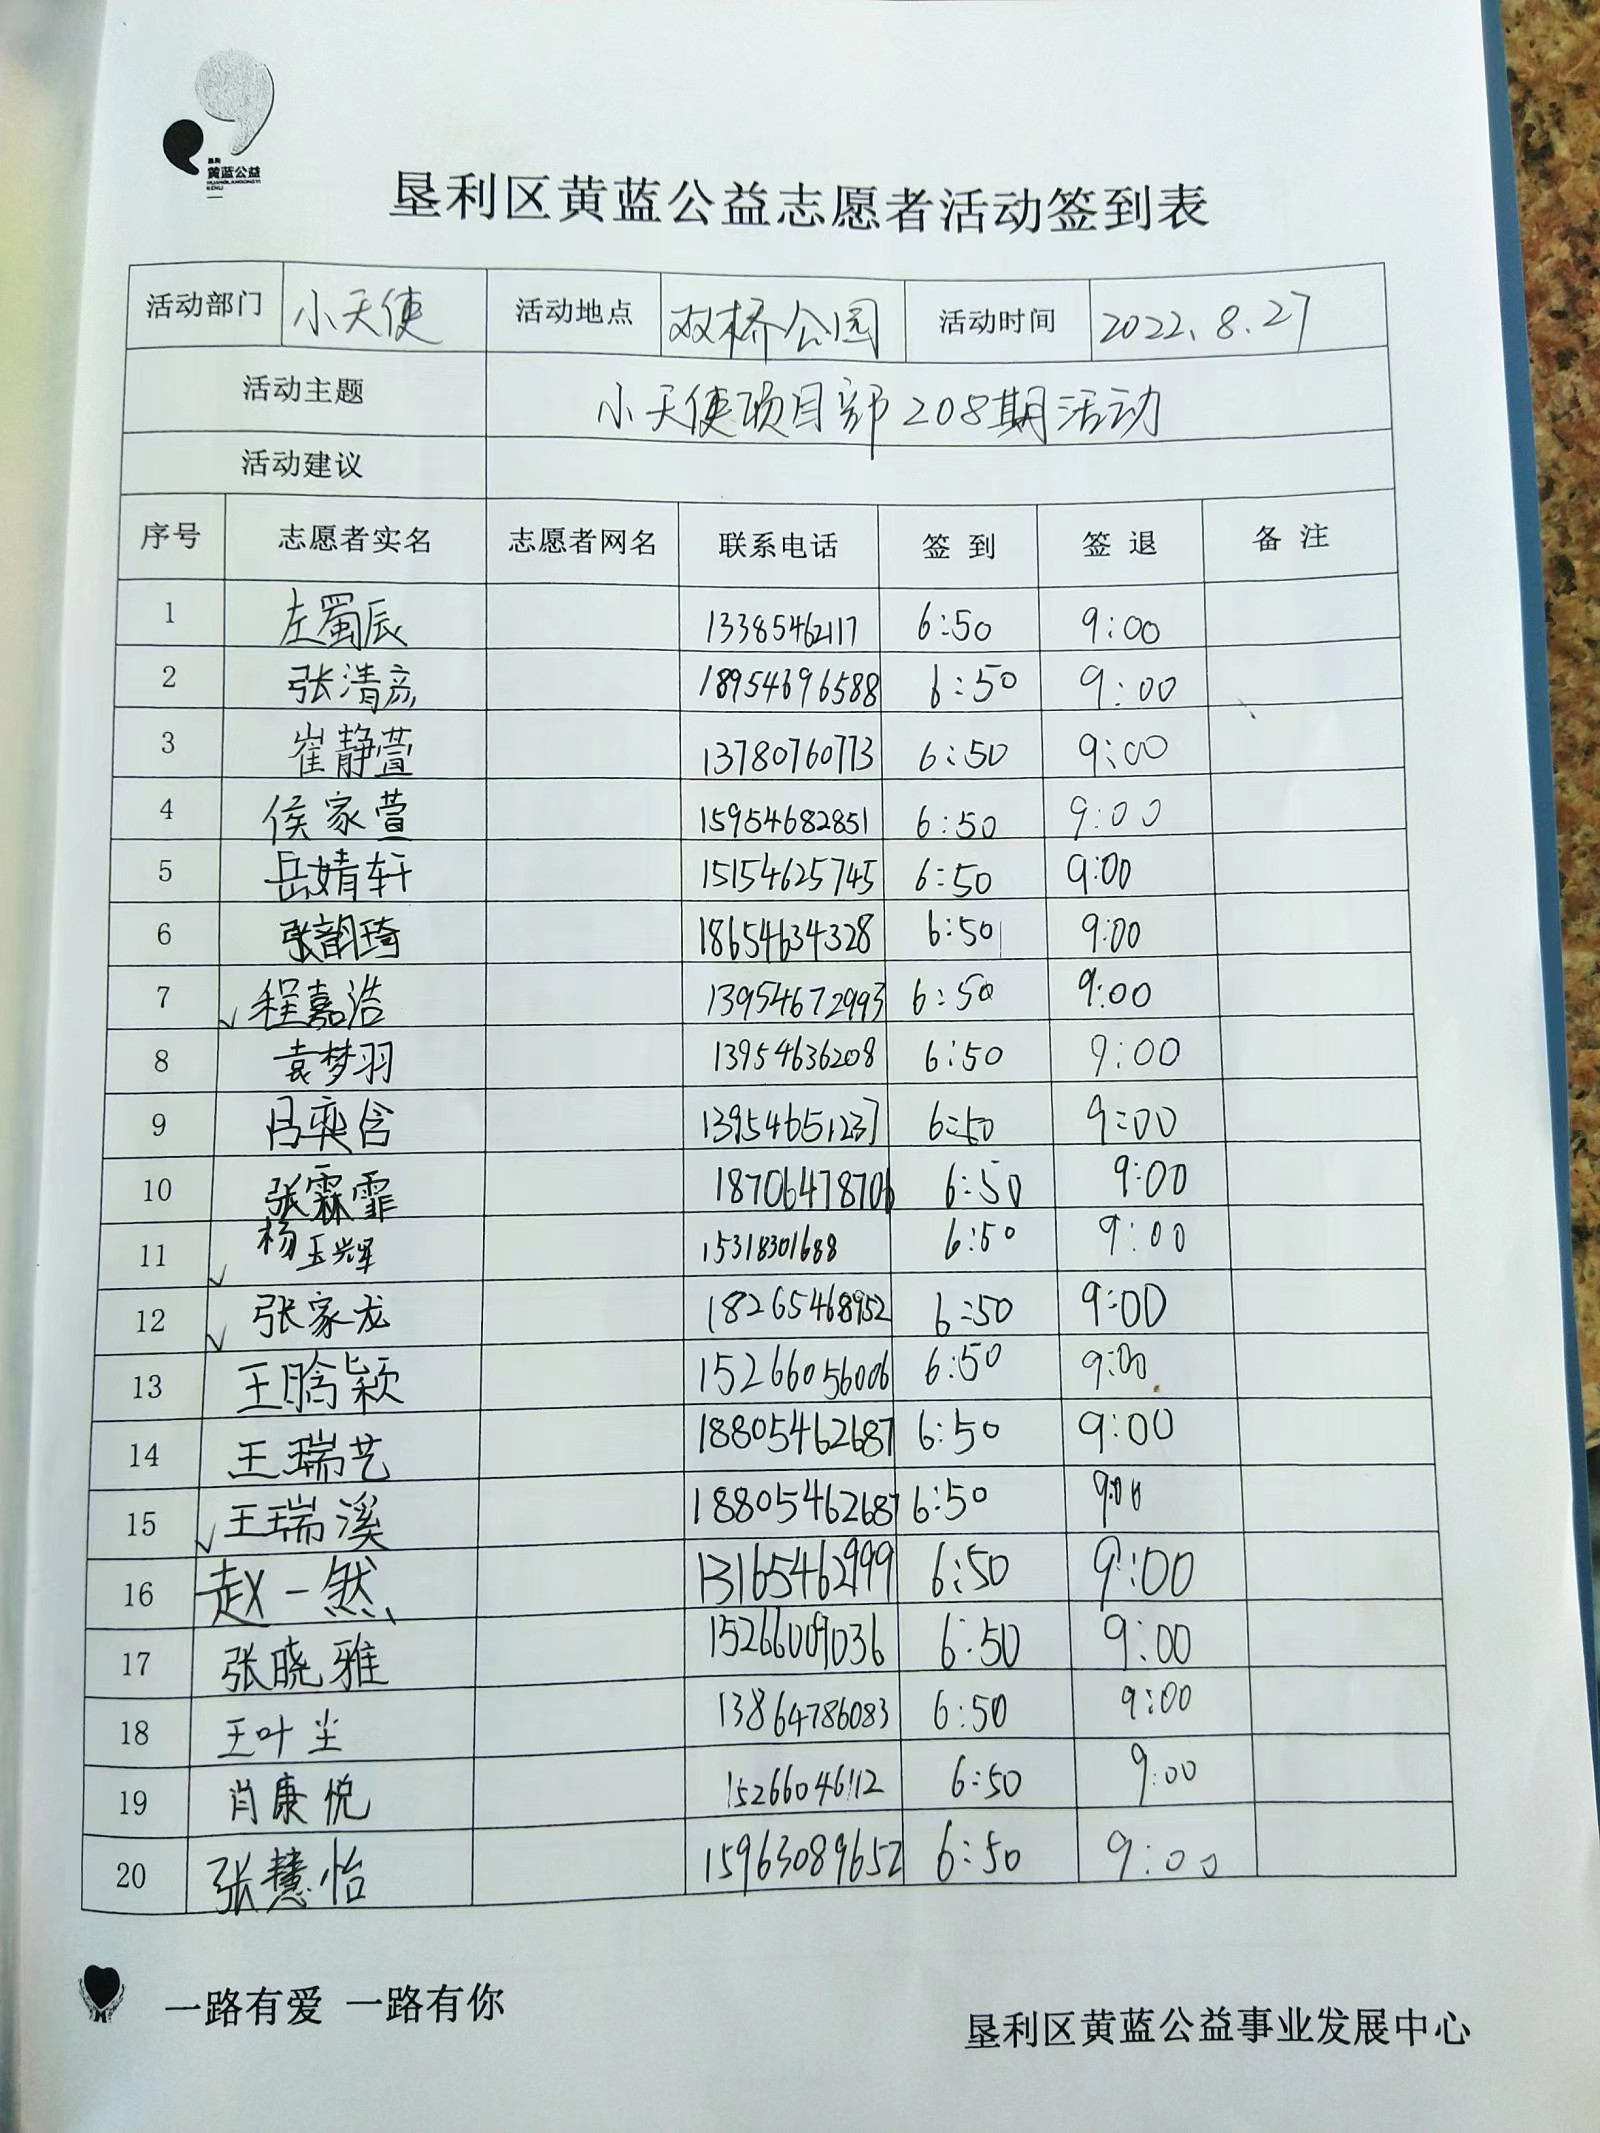 垦利
黄蓝公益
HUANGLANGONGYI
KENLI
垦利区黄蓝公益志愿者活动签到表
活动部门 小天使 活动地点 双桥公园 活动时间 2022.8.27
活动主题 小天使项目部208期活动
活动建议
序号 志愿者实名 志愿者网名 联系电话 签到 签退 备注
1 左蜀辰 13385462117 6:50 9:00
2 张清彦 18954696588 6:50 9:00
3 崔静萱 13780760773 6:50 9:00
4 侯家萱 15954682851 6:50 9:00
5 岳婧轩 15154625745 6:50 9:00
6 张韵琦 18654634328 6:50 9:00
7 ✓程嘉浩 13954672993 6:50 9:00
8 袁梦羽 13954636208 6:50 9:00
9 吕奕含 13954651237 6:50 9:00
10 张霖霏 18706478706 6:50 9:00
11 ✓杨玉辉 15318301688 6:50 9:00
12 ✓张家龙 18265468952 6:50 9:00
13 王晗颖 15266056006 6:50 9:00
14 王瑞艺 18805462687 6:50 9:00
15 ✓王瑞溪 18805462687 6:50 9:00
16 赵一然 13165462999 6:50 9:00
17 张晓雅 15266009036 6:50 9:00
18 王叶尘 13864786083 6:50 9:00
19 肖康悦 15266046112 6:50 9:00
20 张慧怡 15963089652 6:50 9:00
一路有爱 一路有你
垦利区黄蓝公益事业发展中心